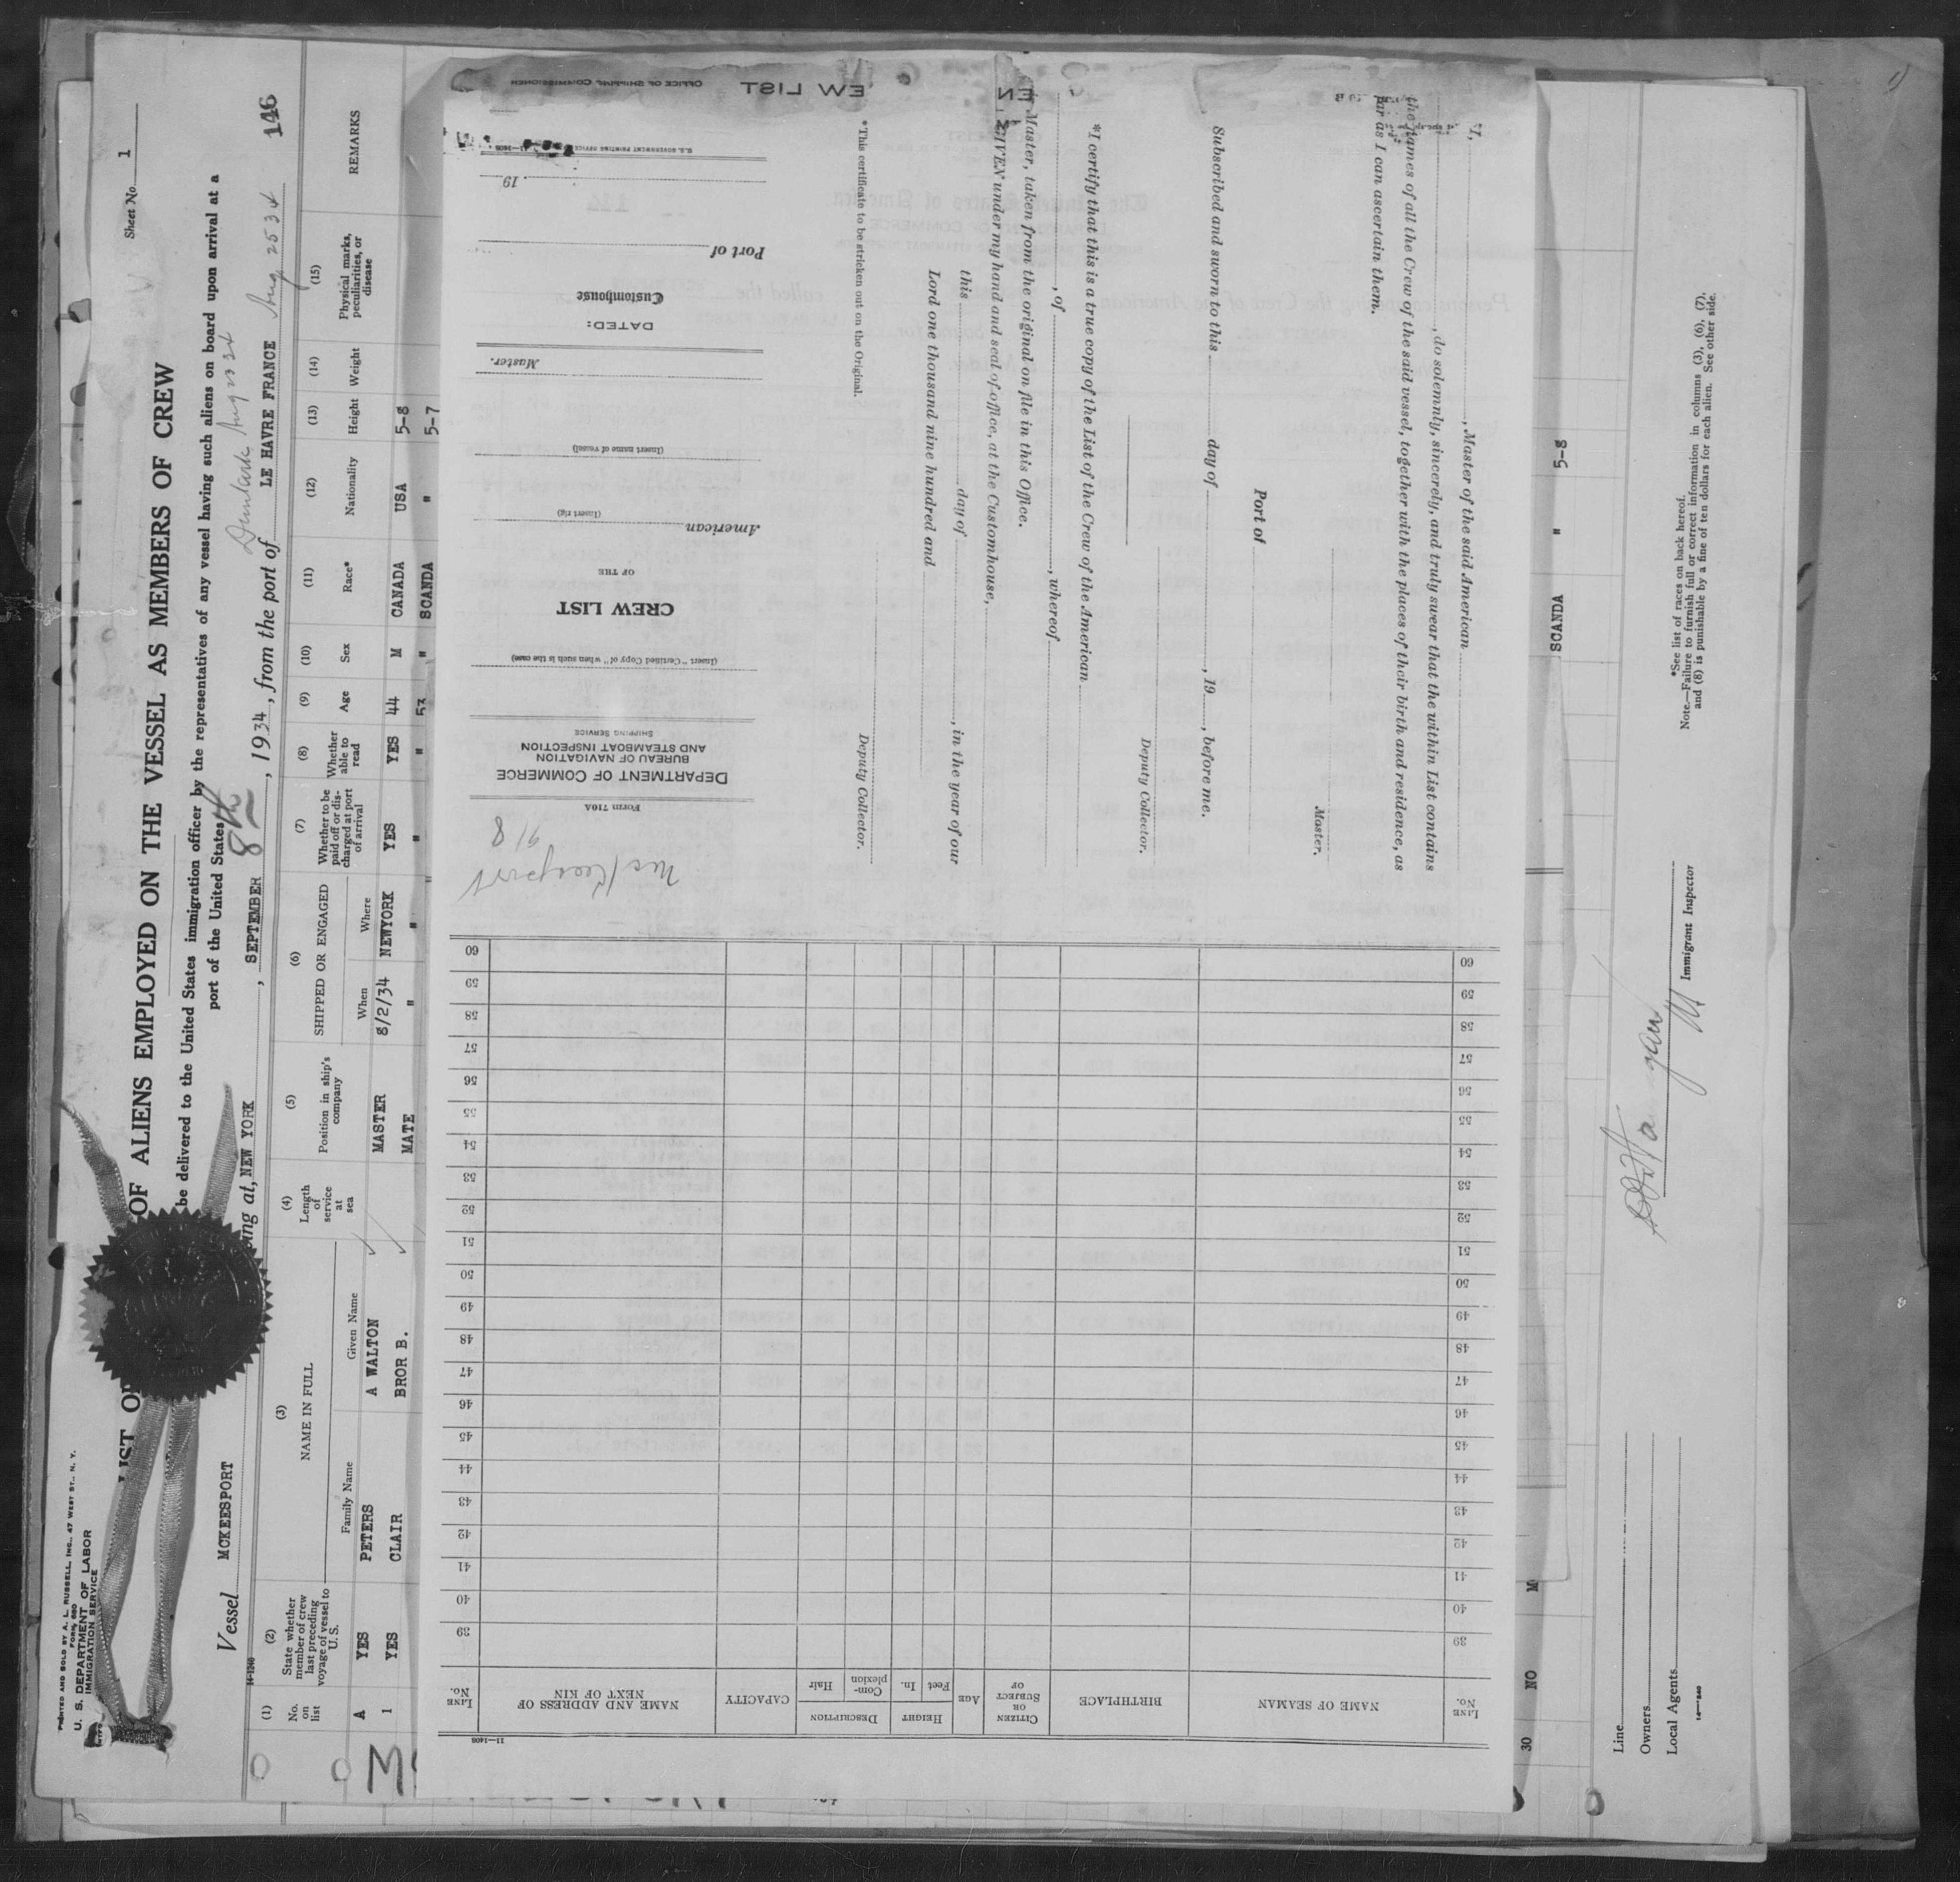 PRINTED AND SOLD BY A. L. RUSSELL, INC., 47 WEST ST., N. Y.
FORM 680
U. S. DEPARTMENT OF LABOR
IMMIGRATION SERVICE
Sheet No. 1
LIST OF ALIENS EMPLOYED ON THE VESSEL AS MEMBERS OF CREW
146
be delivered to the United States immigration officer by the representatives of any vessel having such aliens on board upon arrival at a
port of the United States
Dunkirk Aug 23 34
Vessel MCKEESPORT
ing at, NEW YORK, SEPTEMBER 8th, 1934, from the port of LE HAVRE FRANCE Aug 25 34
14-1240
(1) No. on list
(2) State whether member of crew last preceding voyage of vessel to U. S.
(3) NAME IN FULL
Family Name
Given Name
(4) Length of service at sea
(5) Position in ship's company
(6) SHIPPED OR ENGAGED
When
Where
(7) Whether to be paid off or discharged at port of arrival
(8) Whether able to read
(9) Age
(10) Sex
(11) Race*
(12) Nationality
(13) Height
(14) Weight
(15) Physical marks, peculiarities, or disease
REMARKS
A YES PETERS A WALTON MASTER 8/2/34 NEWYORK YES YES 44 M CANADA USA 5-8
1 YES CLAIR BROR B. MATE " " " " 53 " SCANDA " 5-7
EW LIST
OFFICE OF SHIPPING COMMISSIONER
*I, , Master of the said American
, do solemnly, sincerely, and truly swear that the within List contains
the names of all the Crew of the said vessel, together with the places of their birth and residence, as
far as I can ascertain them.
Master.
Port of
Subscribed and sworn to this day of , 19 , before me.
Deputy Collector.
*I certify that this is a true copy of the List of the Crew of the American
, of , whereof
Master, taken from the original on file in this Office.
GIVEN under my hand and seal of office, at the Customhouse,
this day of , in the year of our
Lord one thousand nine hundred and
Deputy Collector.
*This certificate to be stricken out on the Original.
McKeesport
9/8
Form 710A
DEPARTMENT OF COMMERCE
BUREAU OF NAVIGATION
AND STEAMBOAT INSPECTION
SHIPPING SERVICE
(Insert "Certified Copy of" when such is the case)
CREW LIST
OF THE
American
(Insert rig)
(Insert name of vessel)
Master.
DATED:
Customhouse
Port of
19
U.S. GOVERNMENT PRINTING OFFICE 11—1408
LINE No.
NAME OF SEAMAN
BIRTHPLACE
CITIZEN OR SUBJECT OF
AGE
HEIGHT
Feet
In.
DESCRIPTION
Complexion
Hair
CAPACITY
NAME AND ADDRESS OF NEXT OF KIN
LINE No.
39 39
40 40
41 41
42 42
43 43
44 44
45 45
46 46
47 47
48 48
49 49
50 50
51 51
52 52
53 53
54 54
55 55
56 56
57 57
58 58
59 59
60 60
11—1408
30 NO M SCANDA " 5-8
Line
Owners
Local Agents
14—1240
Immigrant Inspector
*See list of races on back hereof.
Note.—Failure to furnish full or correct information in columns (3), (6), (7),
and (8) is punishable by a fine of ten dollars for each alien. See other side.